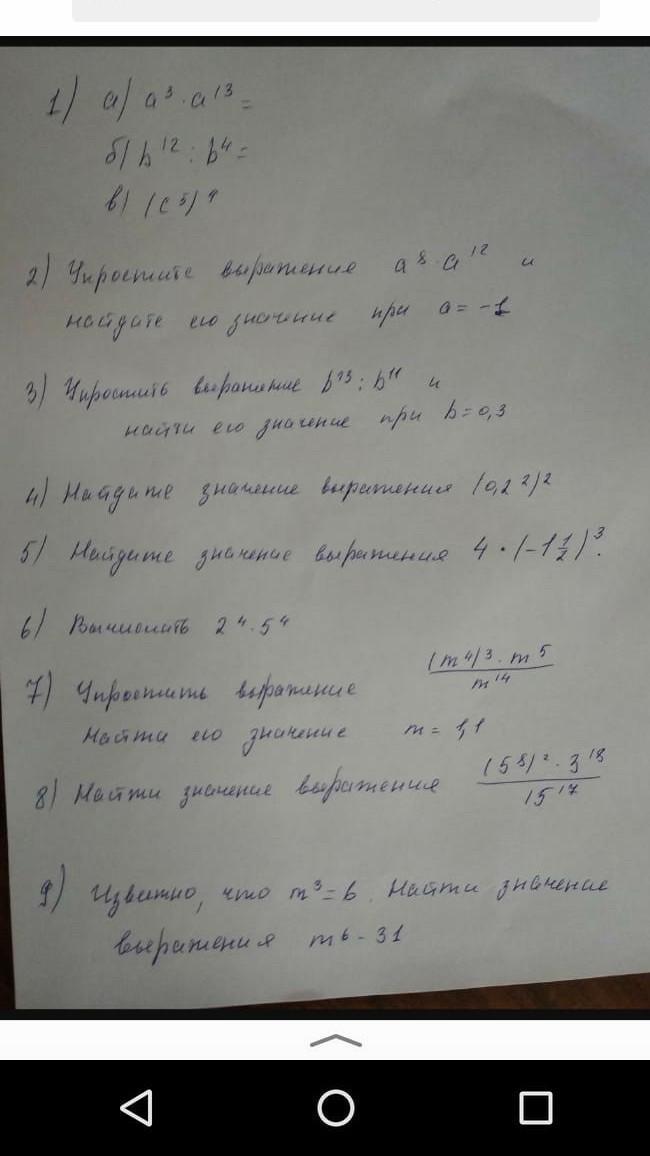 1) а) a³ · a¹³ =
б) b¹² : b⁴ =
в) (c⁵)⁹
2) Упростите выражение a⁸ · a¹² и
найдите его значение при a = -1
3) Упростить выражение b¹³ : b¹¹ и
найти его значение при b = 0,3
4) Найдите значение выражения (0,2²)²
5) Найдите значение выражения 4 · (-1 1/2)³.
6) Вычислить 2⁴ · 5⁴
7) Упростить выражение (m⁴)³ · m⁵ / m¹⁴
Найти его значение m = 1,1
8) Найти значение выражения (5⁸)² · 3¹⁸ / 15¹⁷
9) Известно, что m³ = 6. Найти значение
выражения m⁶ - 31